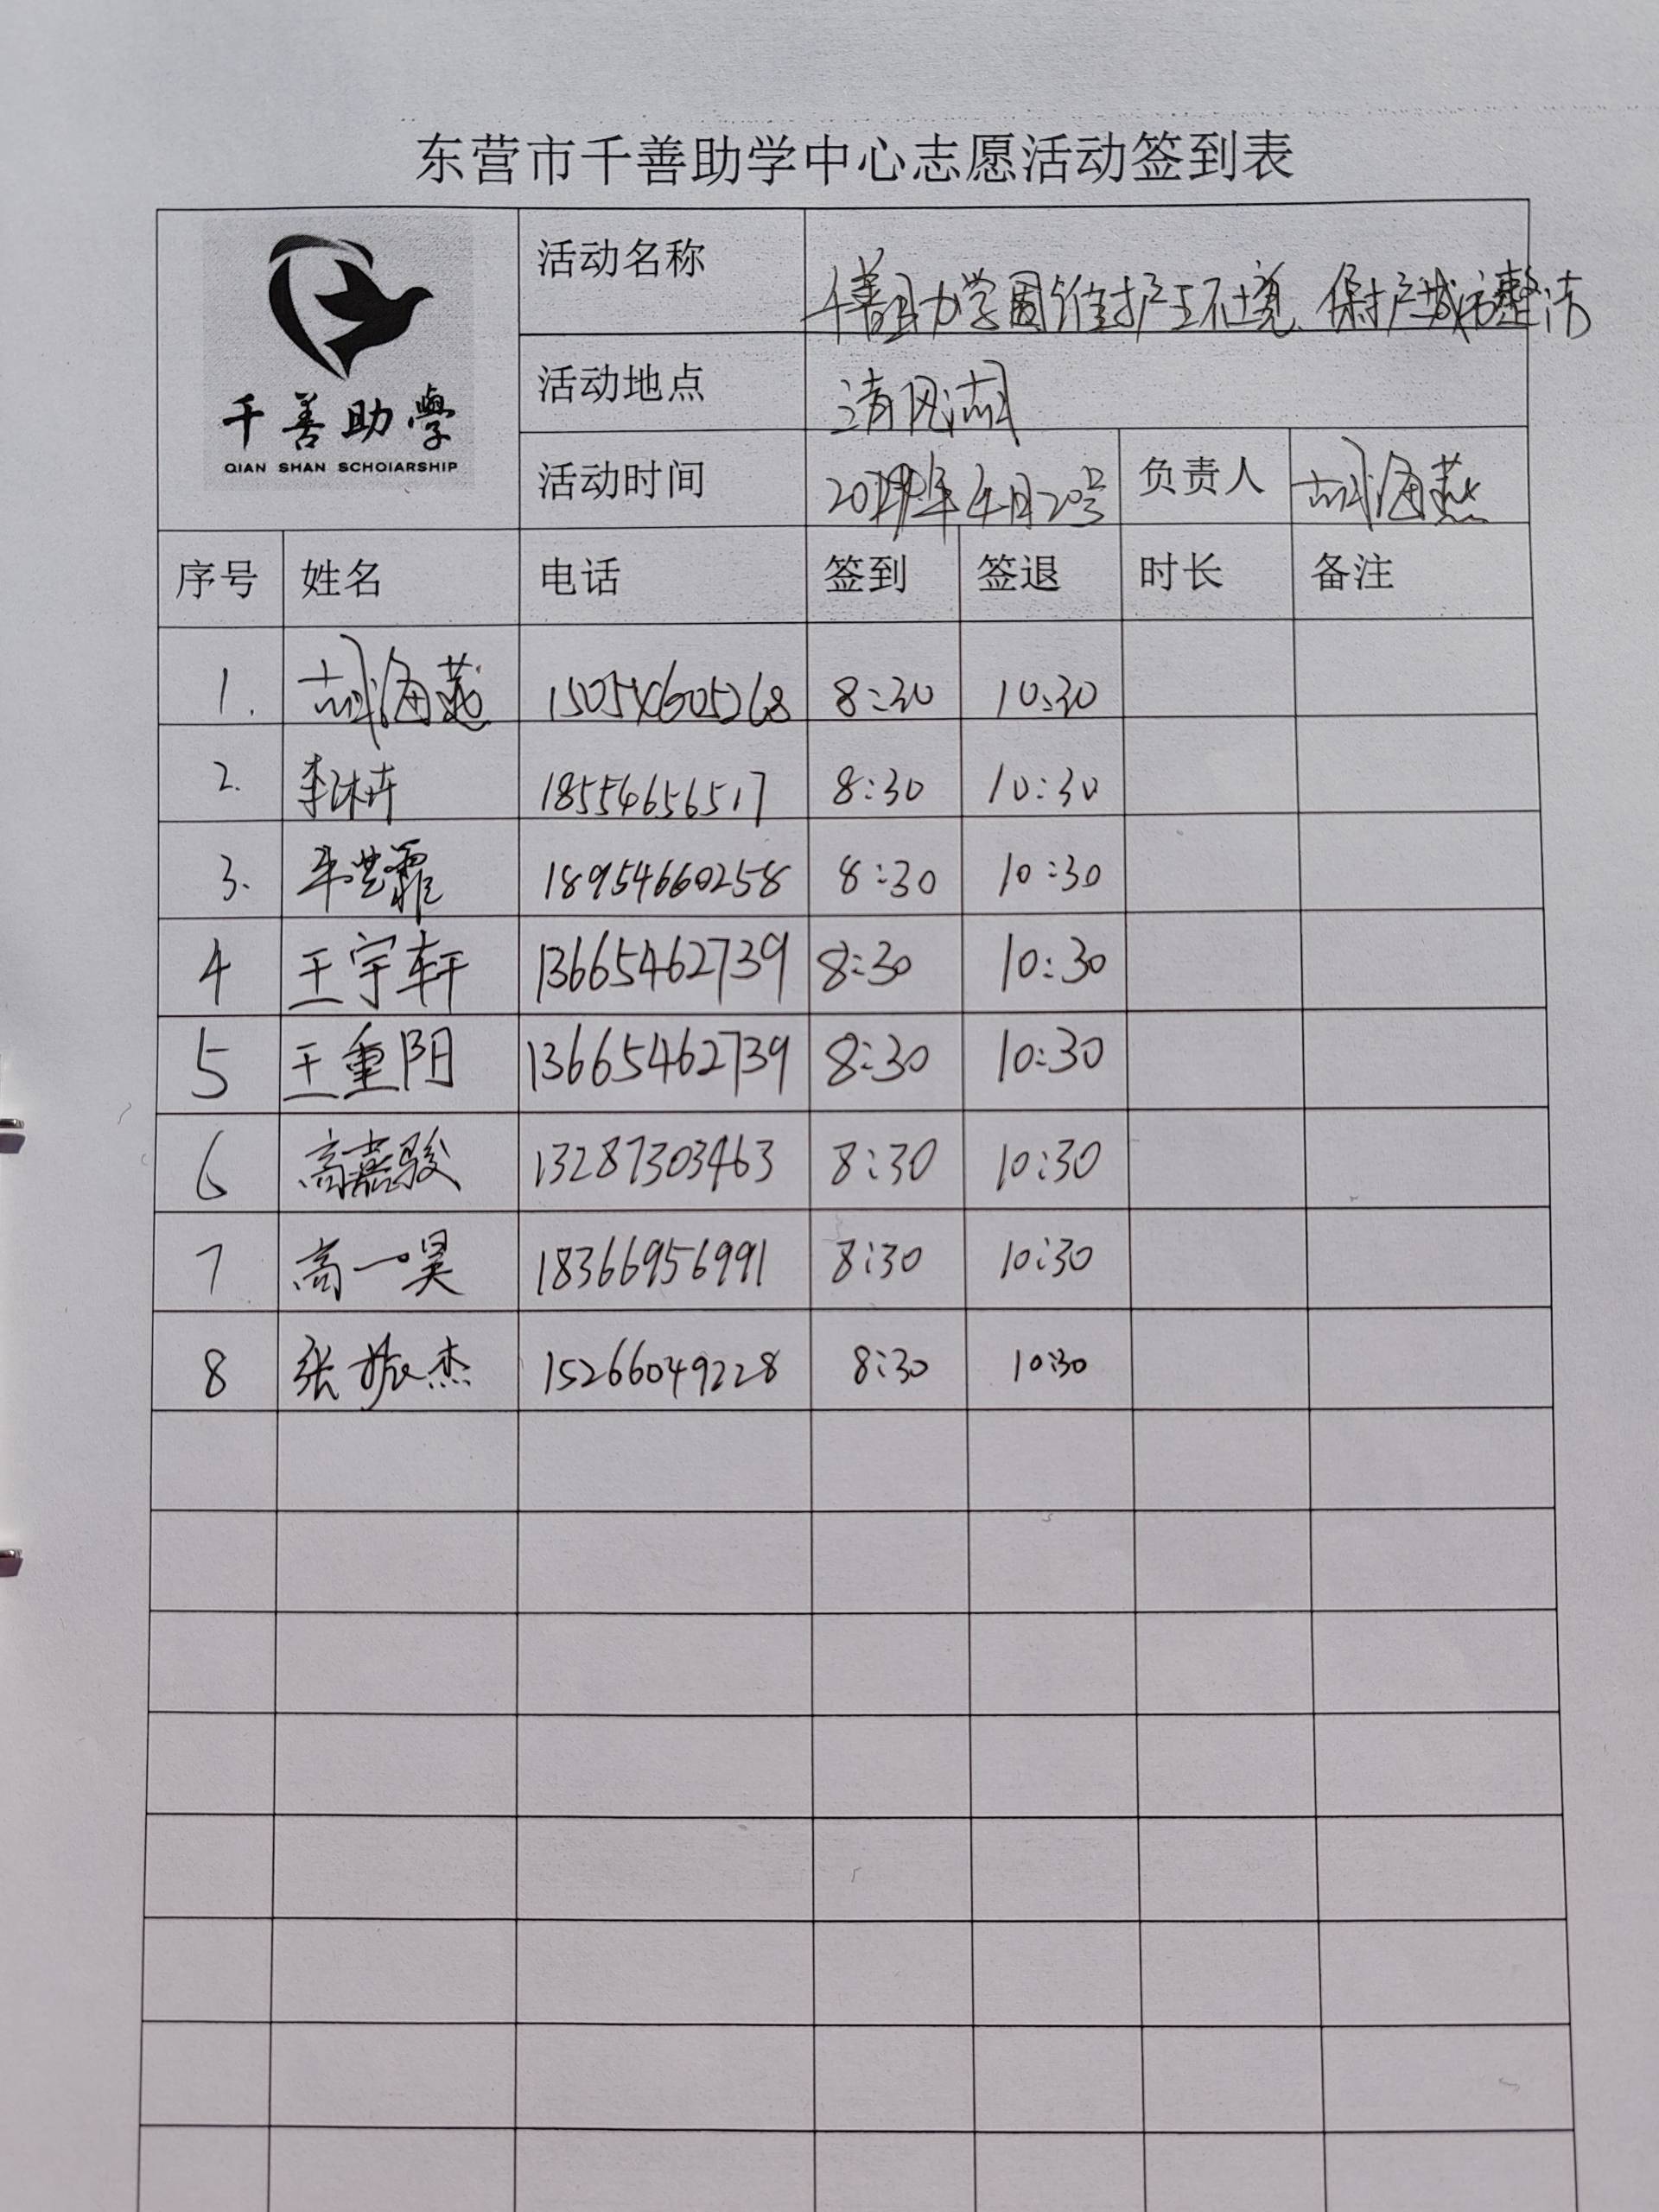 东营市千善助学中心志愿活动签到表
千善助學
QIAN SHAN SCHOIARSHIP
活动名称 千善助学团维护环境、保护城市整洁
活动地点 清风湖
活动时间 年4月20号 负责人 胡海燕
序号 姓名 电话 签到 签退 时长 备注
1. 胡海燕 8:30 10:30
2. 李沐卉 18554656517 8:30 10:30
3. 18954660258 8:30 10:30
4 王宇轩 13665462739 8:30 10:30
5 王重阳 13665462739 8:30 10:30
6 高嘉骏 13287303463 8:30 10:30
7 高一昊 18366956991 8:30 10:30
8 张振杰 15266049228 8:30 10:30